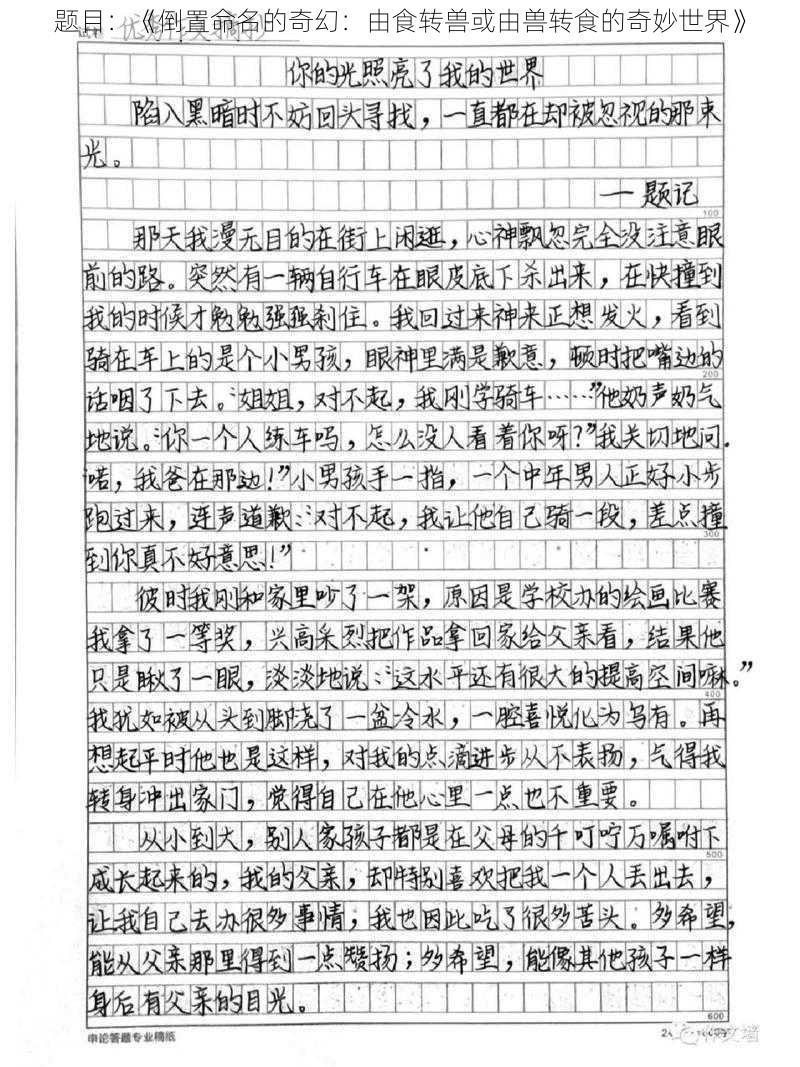 题目：《倒置命名的奇幻：由食转兽或由兽转食的奇妙世界》
你的光照亮了我的世界
陷入黑暗时不妨回头寻找，一直都在却被忽视的那束
光。
——题记
100
那天我漫无目的在街上闲逛，心神飘忽完全没注意眼
前的路。突然有一辆自行车在眼皮底下杀出来，在快撞到
我的时候才勉勉强强刹住。我回过来神来正想发火，看到
骑在车上的是个小男孩，眼神里满是歉意，顿时把嘴边的
200
话咽了下去。“姐姐，对不起，我刚学骑车……”他奶声奶气
地说。“你一个人练车吗，怎么没人看着你呀？”我关切地问.
“喏，我爸在那边！”小男孩手一指，一个中年男人正好小步
跑过来，连声道歉：“对不起，我让他自己骑一段，差点撞
300
到你真不好意思！”
彼时我刚和家里吵了一架，原因是学校办的绘画比赛
我拿了一等奖，兴高采烈把作品拿回家给父亲看，结果他
只是瞅了一眼，淡淡地说：“这水平还有很大的提高空间嘛。”
400
我犹如被从头到脚浇了一盆冷水，一腔喜悦化为乌有。再
想起平时他也是这样，对我的点滴进步从不表扬，气得我
转身冲出家门，觉得自己在他心里一点也不重要。
从小到大，别人家孩子都是在父母的千叮咛万嘱咐下
500
成长起来的，我的父亲，却特别喜欢把我一个人丢出去，
让我自己去办很多事情，我也因此吃了很多苦头。多希望，
能从父亲那里得到一点赞扬；多希望，能像其他孩子一样
身后有父亲的目光。
600
申论答题专业稿纸